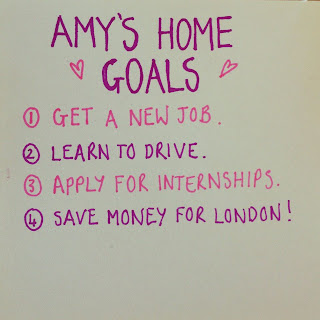 AMY'S HOME
GOALS
① GET A NEW JOB.
② LEARN TO DRIVE.
③ APPLY FOR INTERNSHIPS.
④ SAVE MONEY FOR LONDON!